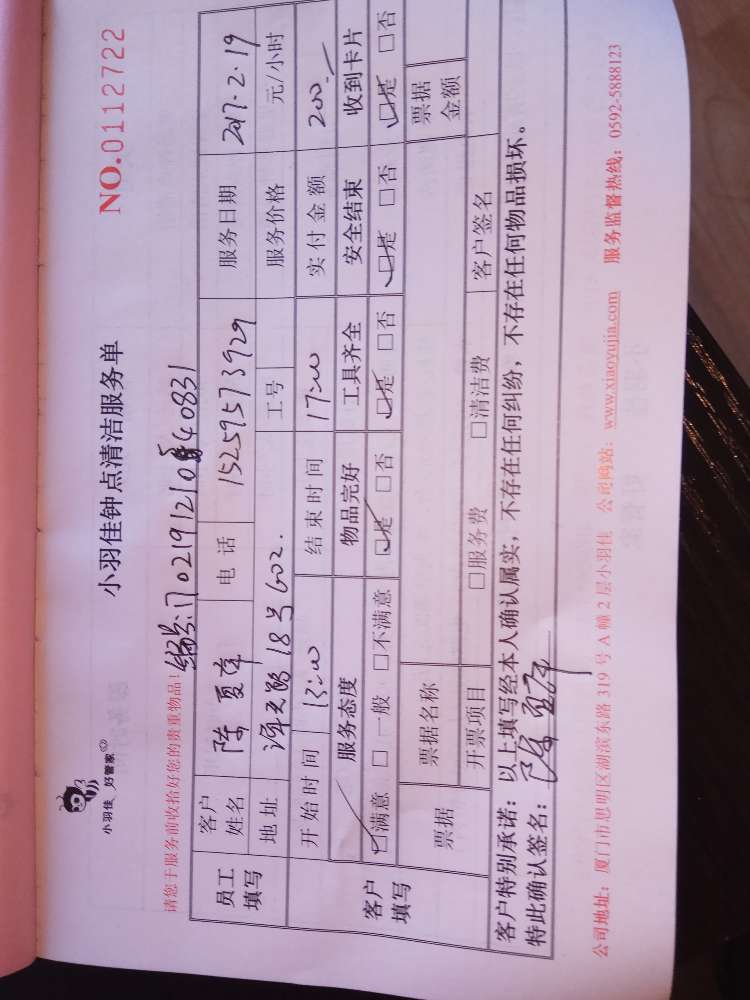 小羽佳 好管家
小羽佳钟点清洁服务单
NO.0112722
请您于服务前收拾好您的贵重物品!
编号:1702191210540831
员工填写 客户姓名 陈夏 电话 15259573929 服务日期 2017.2.19
地址 18号602. 工号 服务价格 元/小时
客户填写 开始时间 13:00 结束时间 17:00 实付金额 200.-
服务态度 物品完好 工具齐全 安全结束 收到卡片
☑满意 □一般 □不满意 ☑是 □否 ☑是 □否 ☑是 □否 ☑是 □否
票据 票据名称 票据金额
开票项目 □服务费 □清洁费 客户签名
客户特别承诺:以上填写经本人确认属实,不存在任何纠纷,不存在任何物品损坏。
特此确认签名:陈
公司地址:厦门市思明区湖滨东路 319 号 A 幢 2 层小羽佳 公司网站:www.xiaoyujia.com 服务监督热线:0592-5888123